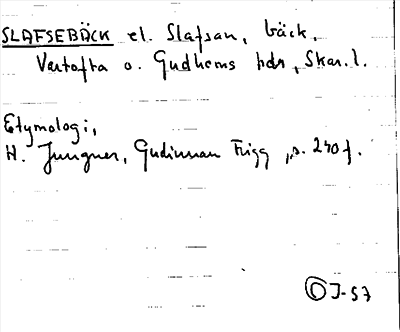 SLAFSEBÄCK el. Slafsan, bäck,
Vartofta o. Gudhems hdr, Skar. l.
Etymologi,
H. Jungner, Gudinnan Frigg, s. 240 f.
© J-57